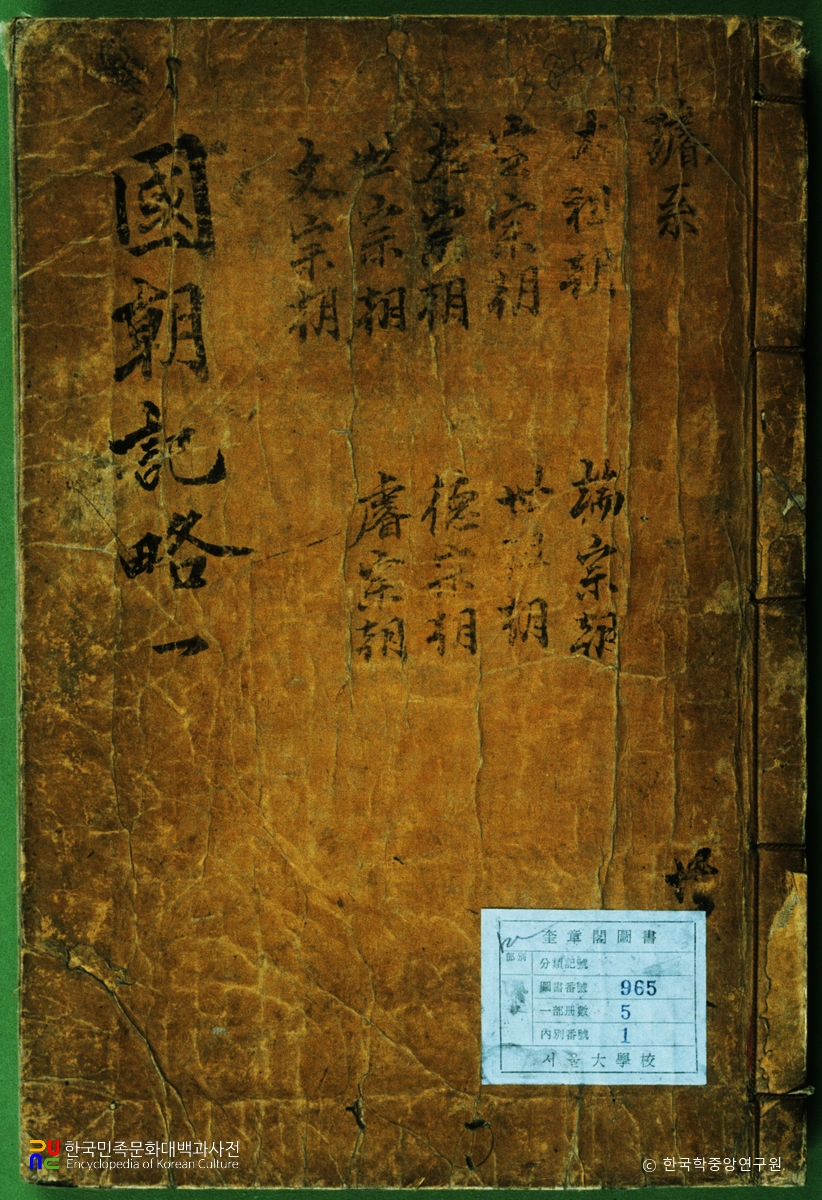 璿系
太祖朝
定宗朝
太宗朝
世宗朝
文宗朝
端宗朝
世祖朝
德宗朝
睿宗朝
國朝記略 一
奎章閣圖書
部別
分類記號
圖書番號 965
一部冊數 5
內別番號 1
서울大學校
한국민족문화대백과사전
Encyclopedia of Korean Culture
© 한국학중앙연구원